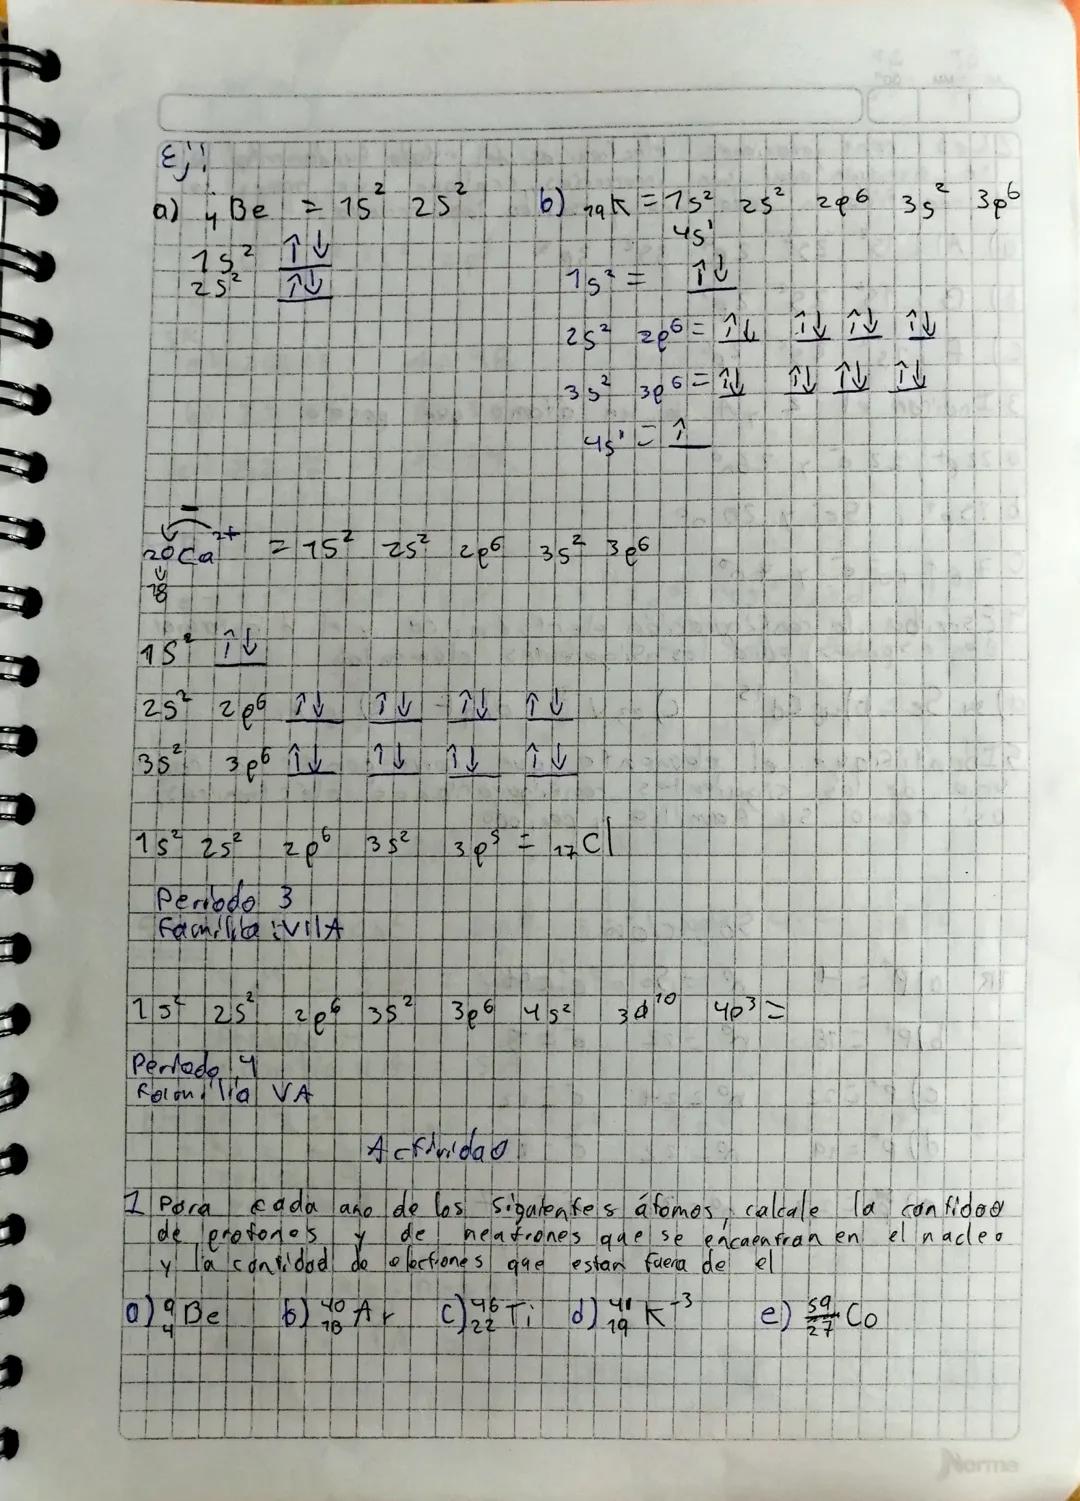 Ej:
a) ₄Be = 1s² 2s²
1s² ↑↓
2s² ↑↓
b) ₁₉K = 1s² 2s² 2p⁶ 3s² 3p⁶
4s¹
1s² = ↑↓
2s² 2p⁶ = ↑↓ ↑↓ ↑↓ ↑↓
3s² 3p⁶ = ↑↓ ↑↓ ↑↓ ↑↓
4s¹ = ↑
₂₀Ca²⁺ = 1s² 2s² 2p⁶ 3s² 3p⁶
18
1s² ↑↓
2s² 2p⁶ ↑↓ ↑↓ ↑↓ ↑↓
3s² 3p⁶ ↑↓ ↑↓ ↑↓ ↑↓
1s² 2s² 2p⁶ 3s² 3p⁵ = ₁₇Cl
Periodo 3
Familia: VIIA
1s² 2s² 2p⁶ 3s² 3p⁶ 4s² 3d¹⁰ 4p³ =
Periodo 4
Familia VA
Actividad
1 Para cada uno de los siguientes átomos, calcule la cantidad
de protones y de neutrones que se encuentran en el nucleo
y la cantidad de electrones que estan fuera de el
a) ⁹₄Be b) ⁴⁰₁₈Ar c) ⁴⁶₂₂Ti d) ⁴¹₁₉K⁻³ e) ⁵⁹₂₇Co
Norma